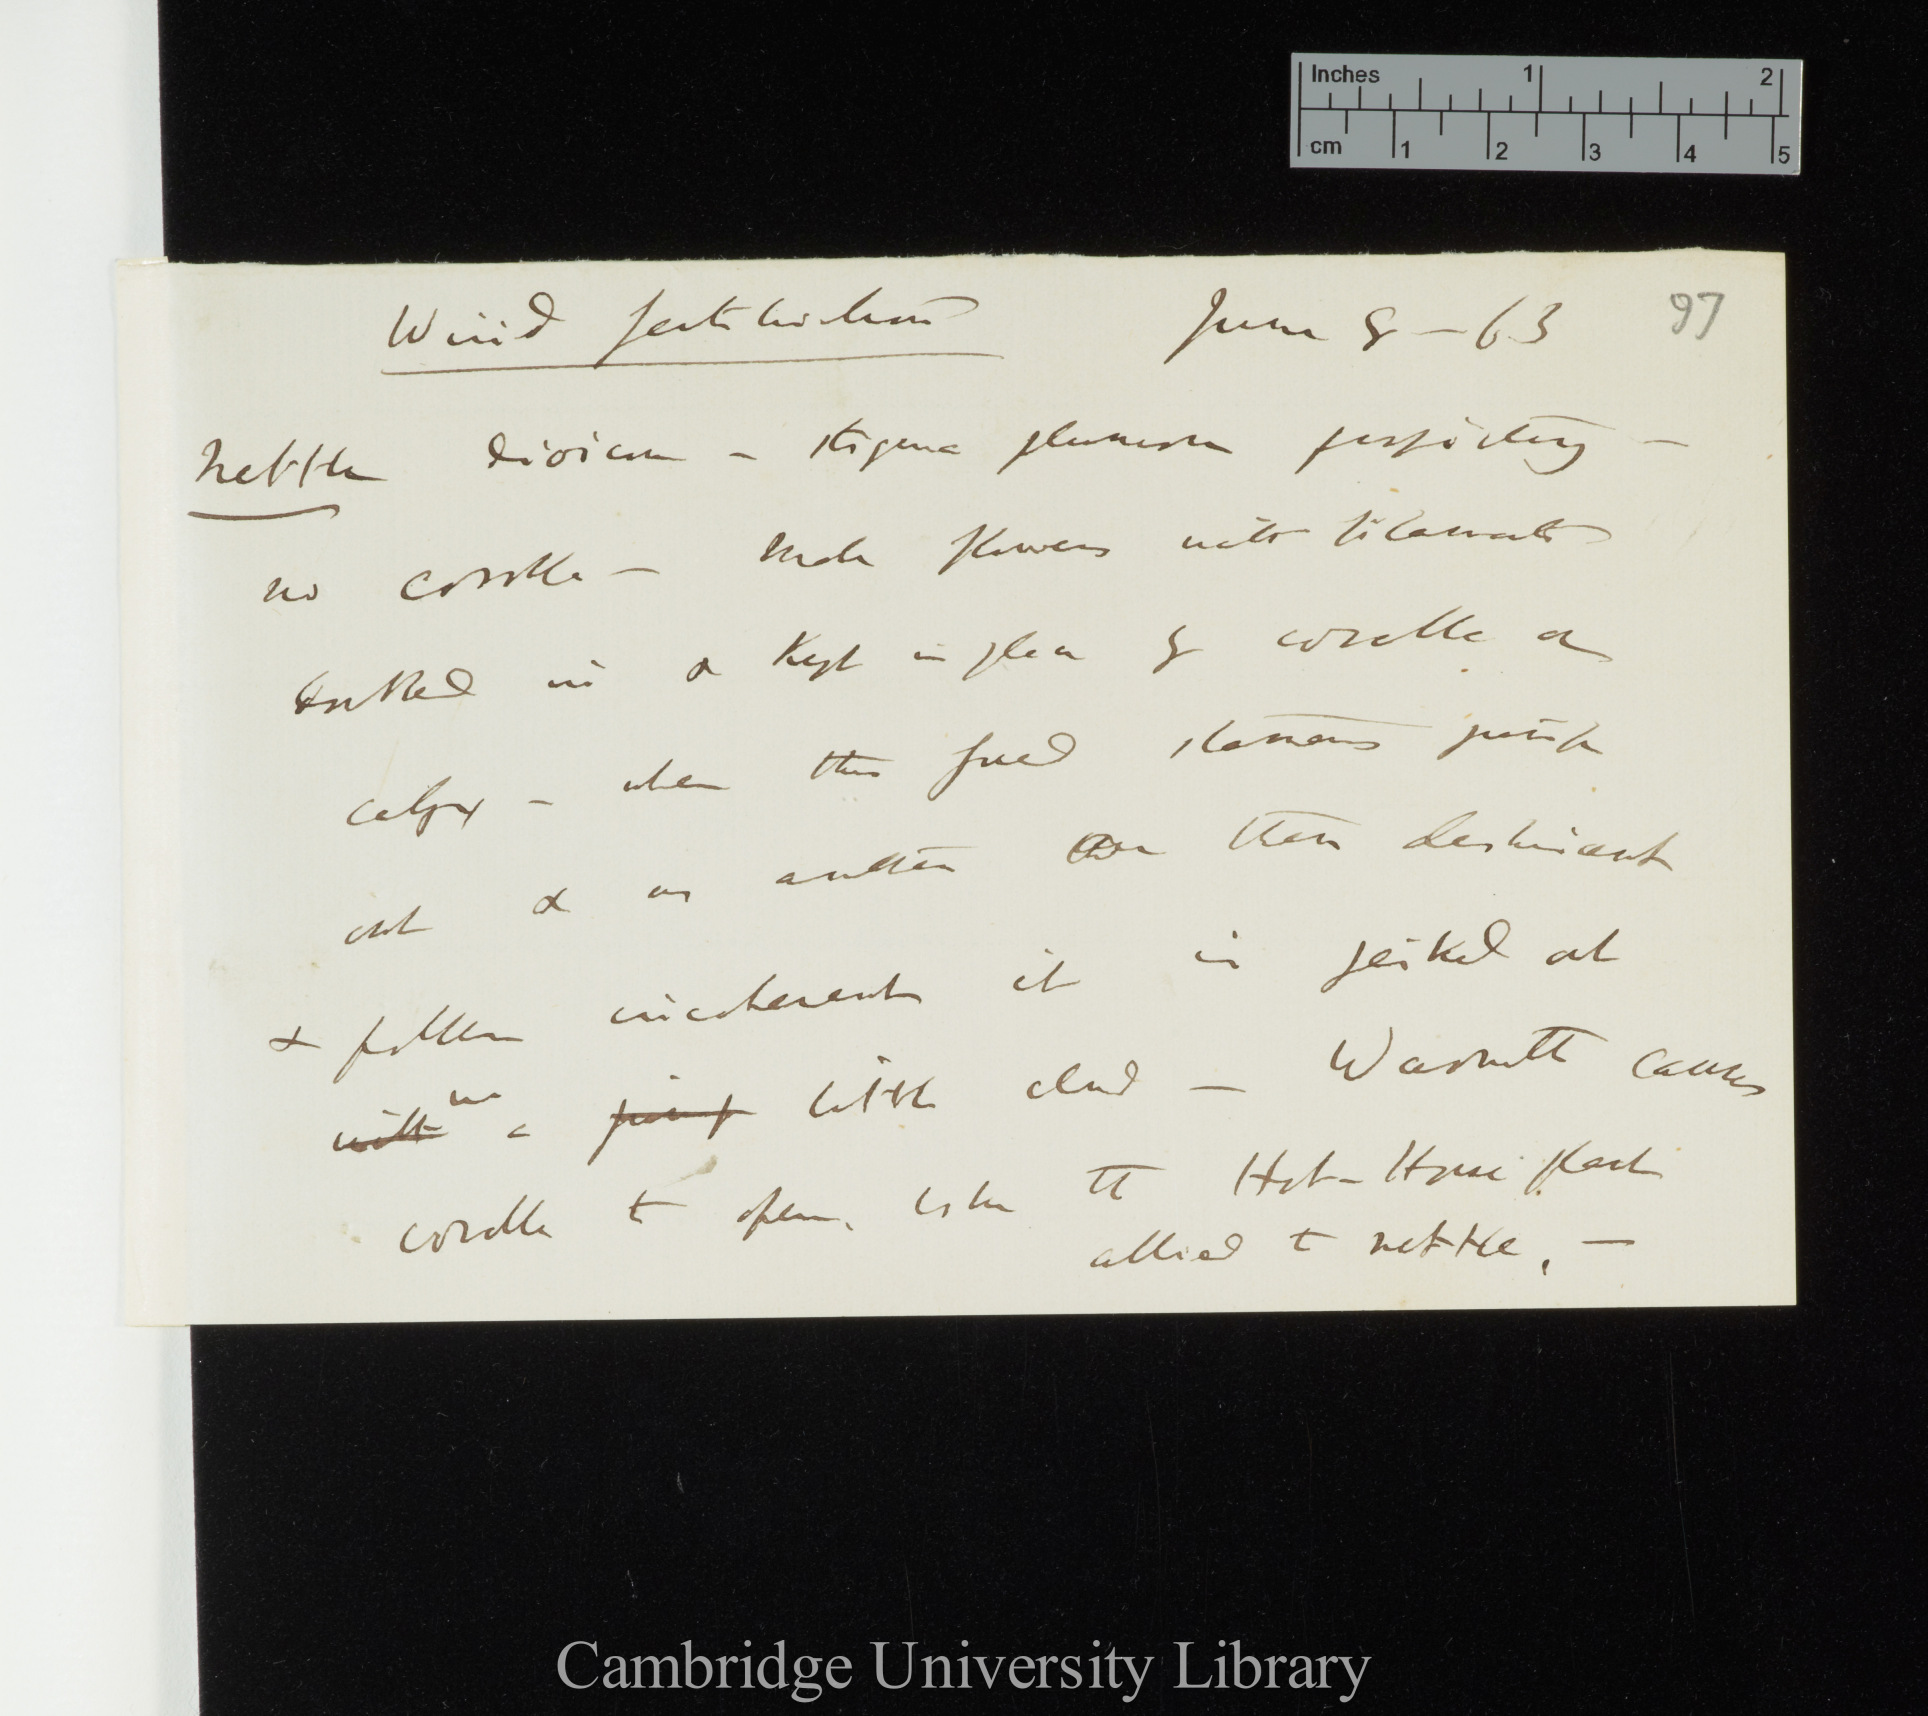 Inches 1 2
cm 1 2 3 4 5
Wind fertilisation June 8 - 63 97
Nettle dioicous - stigma plumose projecting -
no corolla - Male flowers with filaments
tucked in & kept in place by corolla or
calyx - when this freed stamens jump
out & as anthers are then dehiscent
& pollen incoherent it is jerked out
with in a little cloud - Warmth causes
corolla to open, like the Hot-House plant
allied to nettle. -
Cambridge University Library